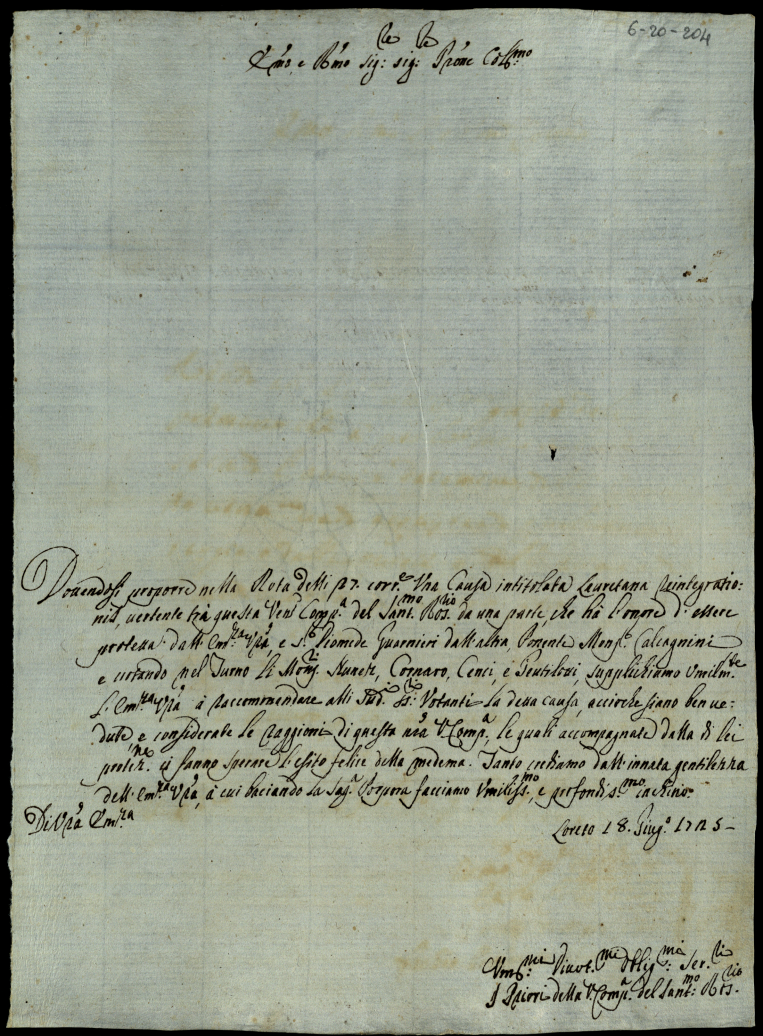 6-20-204
Em̃o, e Rm̃o Sig:re Sig:re Pr̃one Col͠mo
Dovendosi proporre nella Rota delli 27. corr.e Una Causa intitolata Lauretana Reintegratio:
nis, vertente trà questa Ven: Comp.a del Sant.mo Ros.rio da una parte, che hà l'onore d'essere
protetta dall'Em.za Vr̃a, e S.r Diomede Guarnieri dall'altra, Ponente Mons.r Calcagnini
e votando nel Turno li Mons.ri Nunez, Cornaro, Cenci, e Gentilozi supplichiamo Umilm.te
L'Em.za Vr̃a à raccomandare alli Sud.i SS.ri Votanti la detta causa, acciòche siano benve:
dute e considerate le raggioni di questa nr̃a V. Comp.a, le quali accompagnate dalla di lei
protez.ne ci fanno sperare l'esito felice della medema. Tanto crediamo dall'innata gentilezza
dell'Em.za Vr̃a, à cui baciando la Sag.a Porpora facciamo Umiliss.mo, e profondis.mo inchino.
Di Vr̃a Em.za
Loreto 18. Giug.o 1725 -
Um͠mi Divot.mi Oblig.mi Ser.ri
I Priori della V. Comp.a del Sant.mo Ros.rio